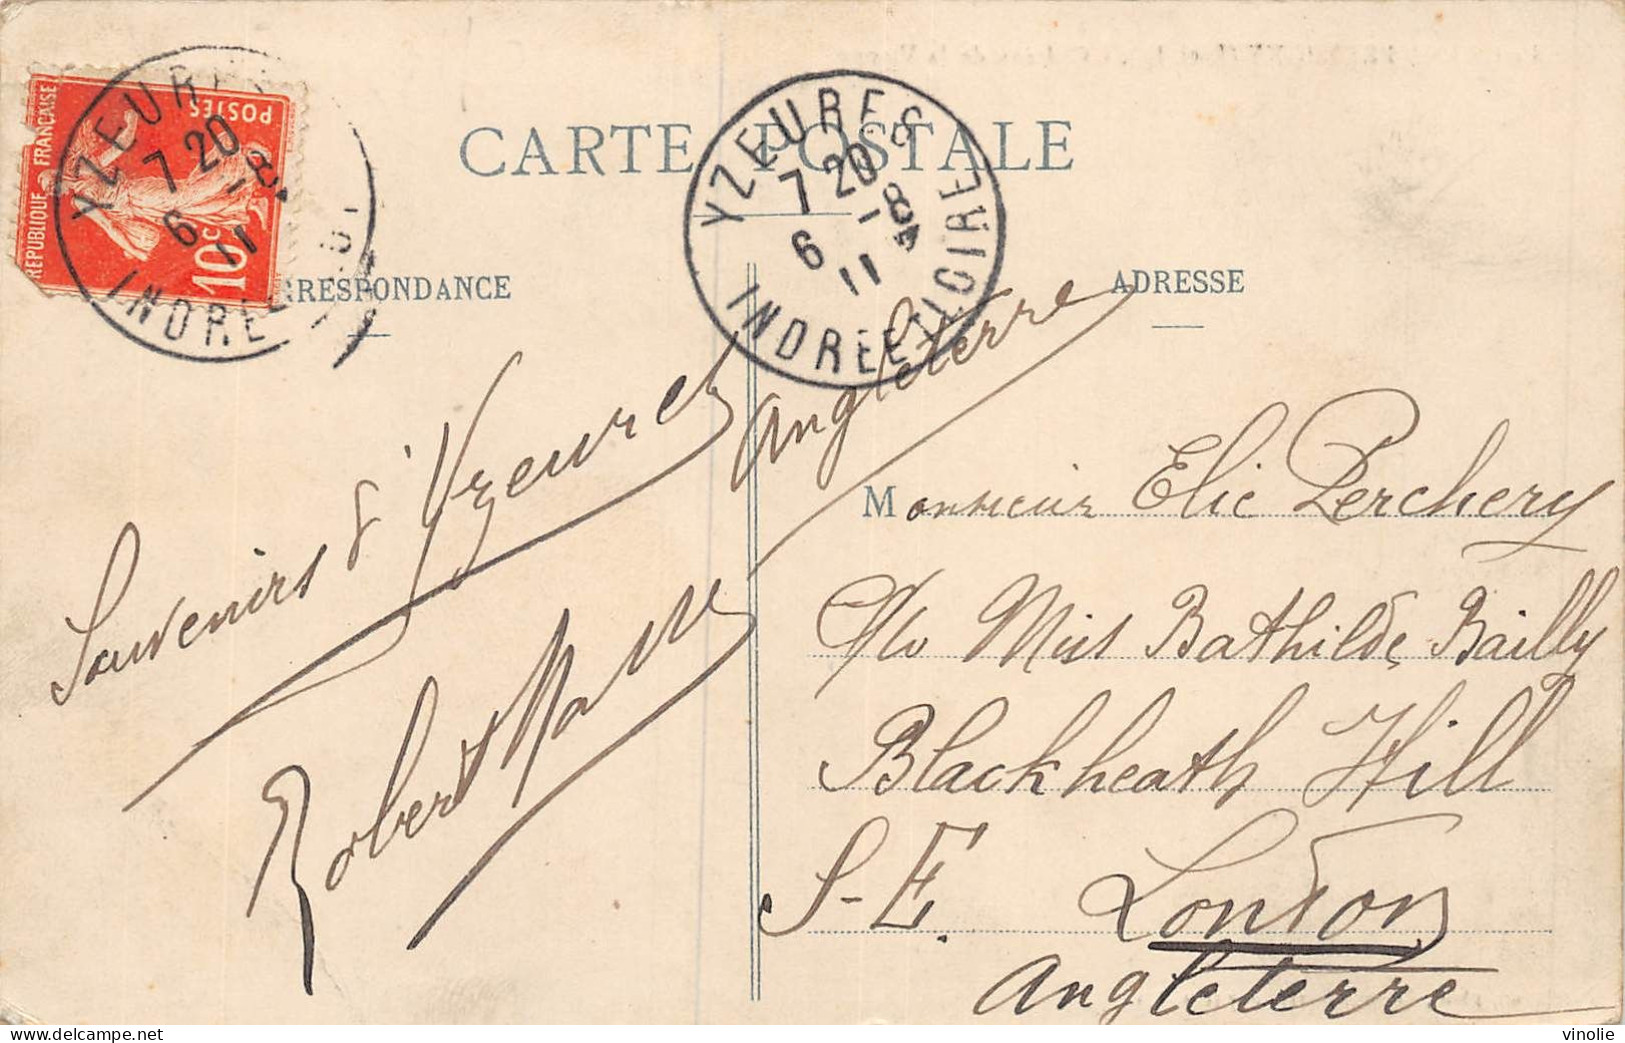 CARTE POSTALE
RÉPUBLIQUE FRANÇAISE
POSTES
10c
YZEURES
7 20
6 -8
11
INDRE
YZEURES
7 20
6 -8 4
11
INDRE ET LOIRE
RRESPONDANCE
ADRESSE
Souvenirs d'Yzeures
Robert
Angleterre
Monsieur Elie Perchery
c/o Miss Bathilde Bailly
Blackheath Hill
S-E. London
Angleterre
vinolie